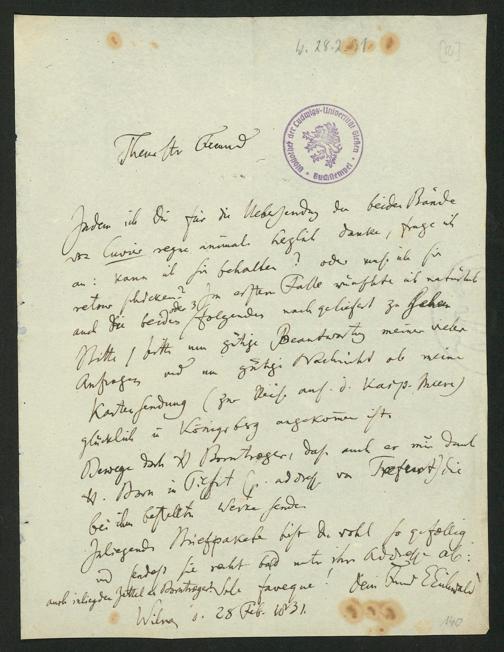 28.2.31
Theuerster Freund
Bibliothek der Ludwigs-Universität Gießen
Buchstempel
Indem ich dir für die Uebersendung der beiden Bände
von Cuvier regne animal herzlich danke, frage ich
an: kann ich sie behalten? oder muß ich sie
retour schicken? Im ersten Falle wünschte ich natürlich
auch die beiden oder 3 folgenden nachgeliefert zu sehen
Bitte, bitte um gütige Beantwortung meiner vielen
Anfragen und um gütige Nachricht ob meine
Kartensendung (zur Reise auf d. Kasp. Meere)
glücklich in Königsberg angekommen ist.
Bewege doch H Borntraeger, daß auch er mir durch
H. Born in Tilsit (p. adress. von) die
bei ihm bestellten Werke sende.
Inliegende Briefpakete bist du wohl so gefällig
und sendest sie recht bald unter ihrer Addresse ab:
auch inliegenden Zettel an Borntraeger
Vale faveque! Dein Freund EEichwald
Wilna d. 28 Feb. 1831.
140